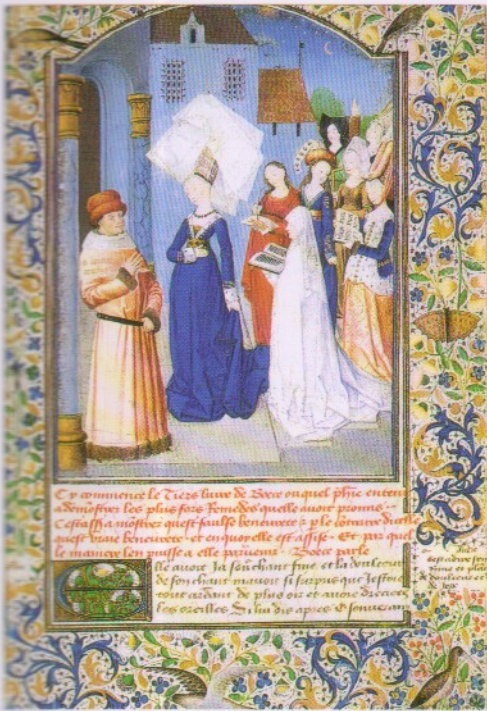 Cy commence le Tiers livre de Boece ouquel phie entend
a demostrer les plus fors remedes quelle avoit promis
Cestassa mostrer quest faulse beneurete & p le contraire
quest vraie beneurete et en quoy elle est assise Et par quel
le maniere len puisse a elle parvenir Boece parle
Elle avoit ja son chant fine et la doulceur
de son chant mavoit si surpris que jestoie
tout ardant de plus oir et avoie drecees
les oreilles Si lui dis apres O souverain